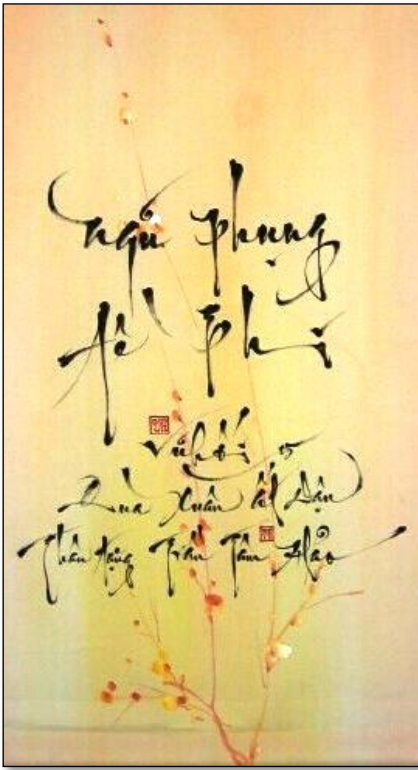 ngũ phụng
tề phi
Vũ Hối
Quà Xuân Ất Dậu
Thân tặng Trần Tâm Hảo